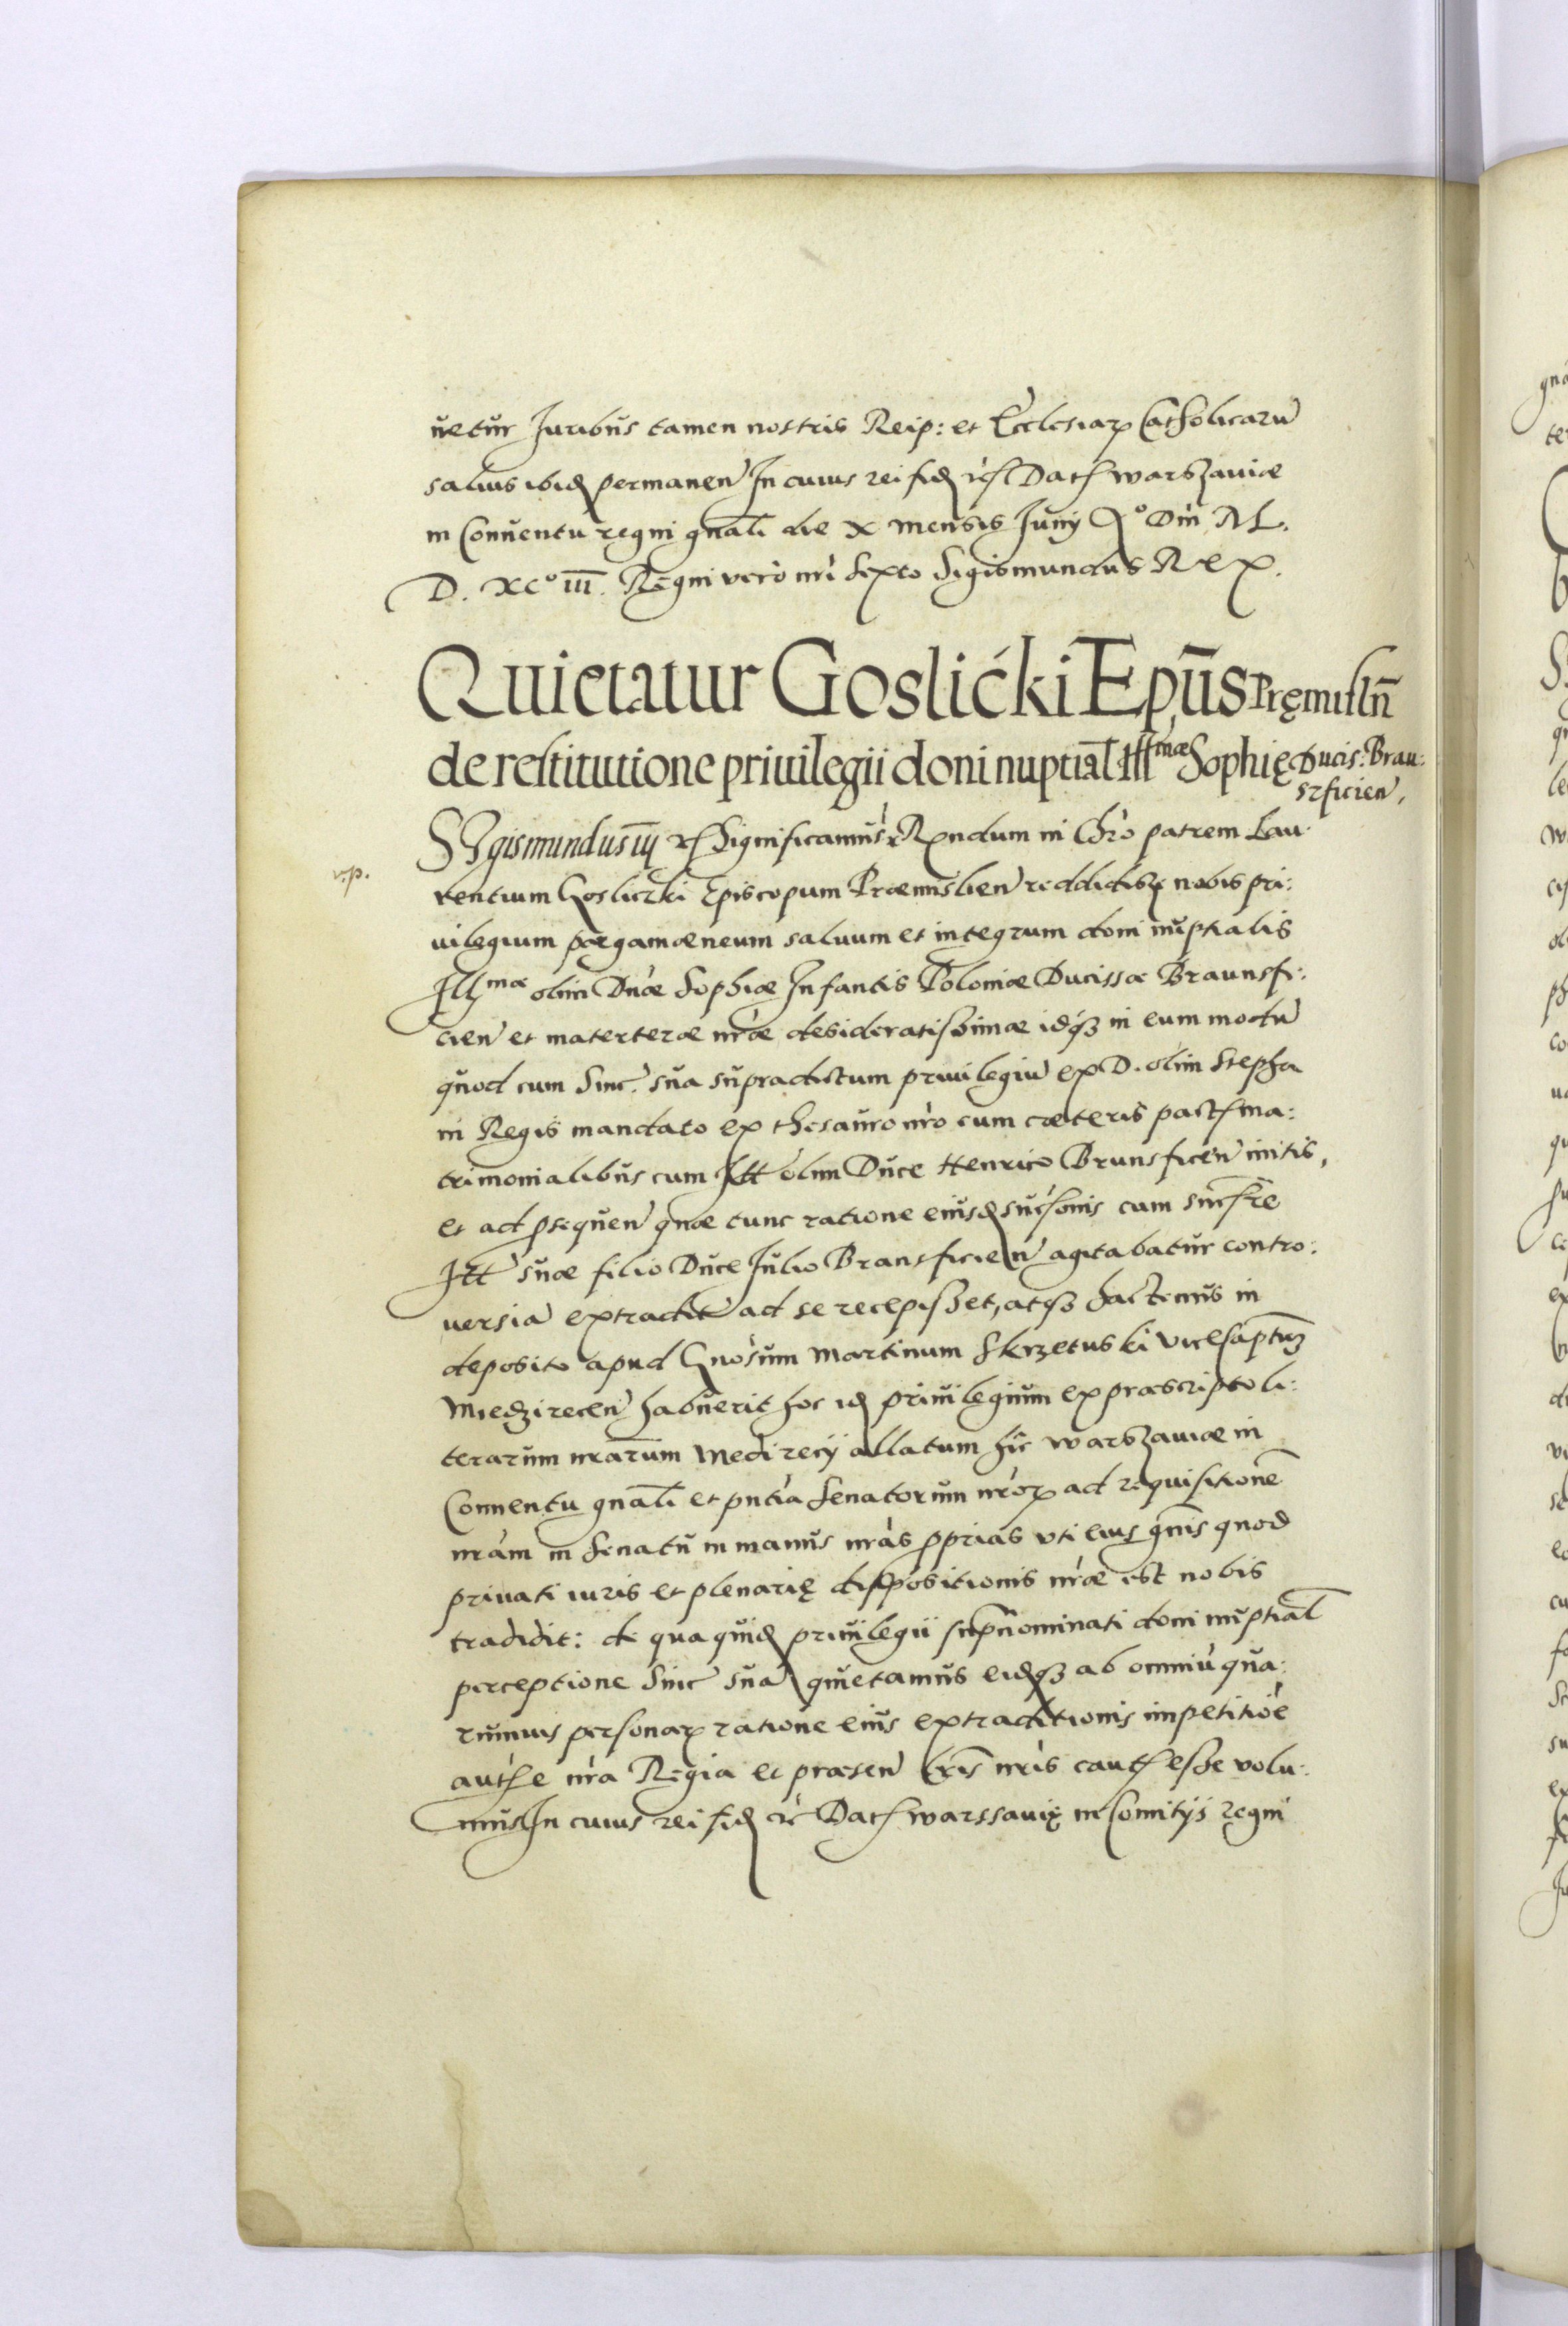 uetur Iuribus tamen nostris Reip: et Ecclesiarꝝ Catholicarū
saluis ibidꝫ permanen̄ In cuius rei fidꝫ ⁊c̃ Datꝫ warszauiæ
in Conuentu regni gn̄ali die X mensis Iunij Aº Dn̄i M.
D. XCº III. Regni vero nr̄i sexto Sigismundus Rex.
Quietatur Goslićki Ep̄us Pręmisln̄
de restitutione priuilegii doni nuptial̄ Illmæ Sophię Ducis: Brau:
szficien̄,
SYgismundus iij ⁊c̃ Significamus ⁊c̃ Rn̄dum in Chr̄o patrem Lau
v.p.
rentium Gosliczki Episcopum Præmislien̄ reddidisse nobis pri:
uilegium pargamæneum saluum et integrum doni nuptialis
Illmæ olim Dn̄æ Sophiæ Infantis Poloniæ Ducissæ Braunsfi:
cien̄ et materteræ nr̄æ desideratissimæ idqꝫ in eum modū
quod cum Sinc. sua supradictum priuilegiū ex D. olim Stepha
ni Regis mandato ex thesauro nr̄o cum cæteris pactꝫ ma:
trimonialibus cum Ill̄ olim Duce Henrico Brunsficen̄ initis,
et ad ꝓsequen̄ quæ tunc ratione eiusdꝫ succ̄ionis cum
Ill̄ suæ filio Duce Iulio Bransficien̄ agitabatur contro:
uersia extradit ad se recepisset, atqꝫ hactenus in
deposito apud Gn̄osum Martinum Skrzetuski vicecapt̄m
Miedzirecen̄ habuerit hoc idꝫ priuilegium ex præscripto li:
terarum nr̄arum Medirecij allatum hic warszauiæ in
Conuentu gn̄ali et pn̄tia Senatorum nr̄oꝝ ad requisitionē
nr̄am in Senatu in manus nr̄as ꝓprias vti eius gn̄is quod
priuati iuris et plenarię dispositionis nr̄æ est nobis
tradidit: de qua quidꝫ priuilegii supn̄ominati doni nuptial̄
perceptione Sinc̄ suā quietamus eidqꝫ ab omniū qua:
rumuis personaꝝ ratione eius extraditionis impetitiōe
autꝫe nr̄a Regia et præsen̄ lr̄is nr̄is cautꝫ esse volu:
mus In cuius rei fidꝫ ⁊c̄ Datꝫ warssauię in Comitijs regni